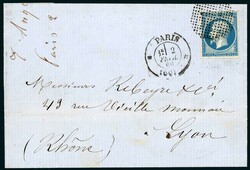 PARIS
2
(60)
Paris 2
Messieurs Ribeyre & Cie
43 rue Vieille monnaie
Lyon
(Rhône)